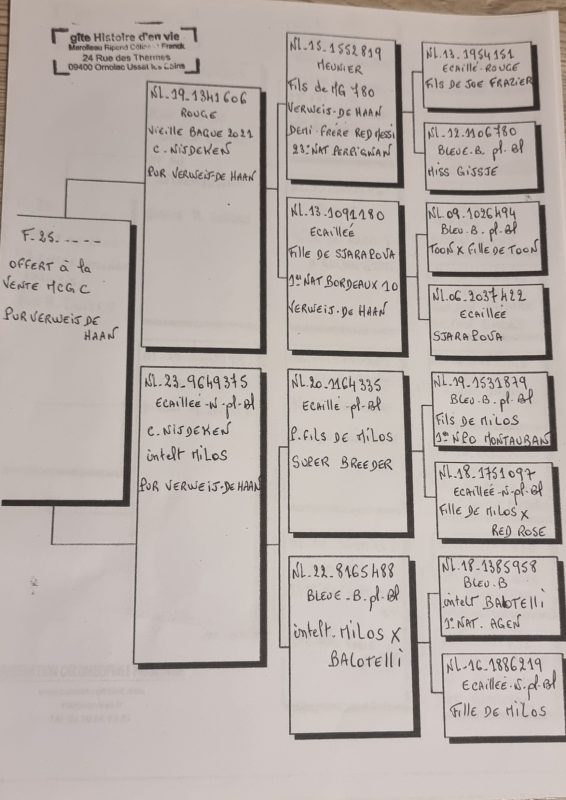 gîte Histoire d'en vie
24 Rue des Thermes
09400 Ornolac Ussat les Bains
F.25.----
OFFERT à la
VENTE MCGC
PUR VERWEIS DE
HAAN
NL.19.1341606
ROUGE
VIEILLE BAGUE 2021
C. NIJDEKEN
PUR VERWEIJ-DE HAAN
NL.23.9649375
ECAILLEÉ-N-pl-Bl
C. NIJDEKEN
intelt MILOS
PUR VERWEIJ-DE HAAN
NL.15.1552819
MEUNIER
Fils de MG 780
VERWEIS-DE HAAN
DEMI-FRÈRE RED MESSI
23e NAT PERPIGNAN
NL.13.1091180
ECAILLEÉ
FILLE DE SJARAPOVA
1er NAT BORDEAUX 10
VERWEIJ-DE HAAN
NL.20.1164335
ECAILLÉ-pl-Bl
P.fils DE MILOS
SUPER BREEDER
NL.22-8165488
BLEUE-B.pl-Bl
intelt-MILOS X
BALOTELLI
NL.13.1954151
ECAILLÉ-ROUGE
FILS DE JOE FRAZIER
NL.12.1106780
BLEUE-B. pl-Bl
MISS GISSJE
NL.09.1026494
BLEU-B. pl-Bl
TOON X FILLE DE TOON
NL.06.2037422
ECAILLEÉ
SJARAPOVA
NL.19-1531879
BLEU-B. pl-Bl
FILS DE MILOS
1er NPO MONTAUBAN
NL.18.1751097
ECAILLEÉ-N-pl-Bl
FILLE DE MILOS X
RED ROSE
NL-18-1385958
BLEU-B
intelt BALOTELLI
1er NAT. AGEN
NL-16.1886219
ECAILLEÉ-N-pl-Bl
FILLE DE MILOS